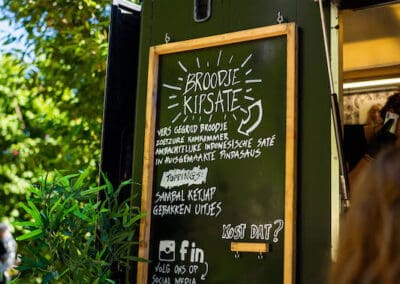 BROODJE
KIPSATE
VERS GEGRILD BROODJE
ZOETZURE KOMKOMMER
AMBACHTELIJKE INDONESISCHE SATÉ
IN HUISGEMAAKTE PINDASAUS
TOPPINGS:
SAMBAL KETJAP
GEBAKKEN UITJES
KOST DAT?
f in
VOLG ONS OP
SOCIAL MEDIA